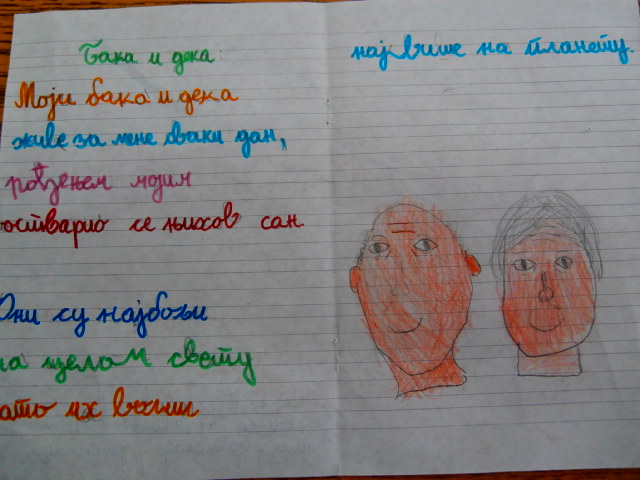 Бака и дека
Моји бака и дека
живе за мене сваки дан,
рођењем мојим
остварио се њихов сан.
Они су најбољи
на целом свету
зато их волим
највише на планету.